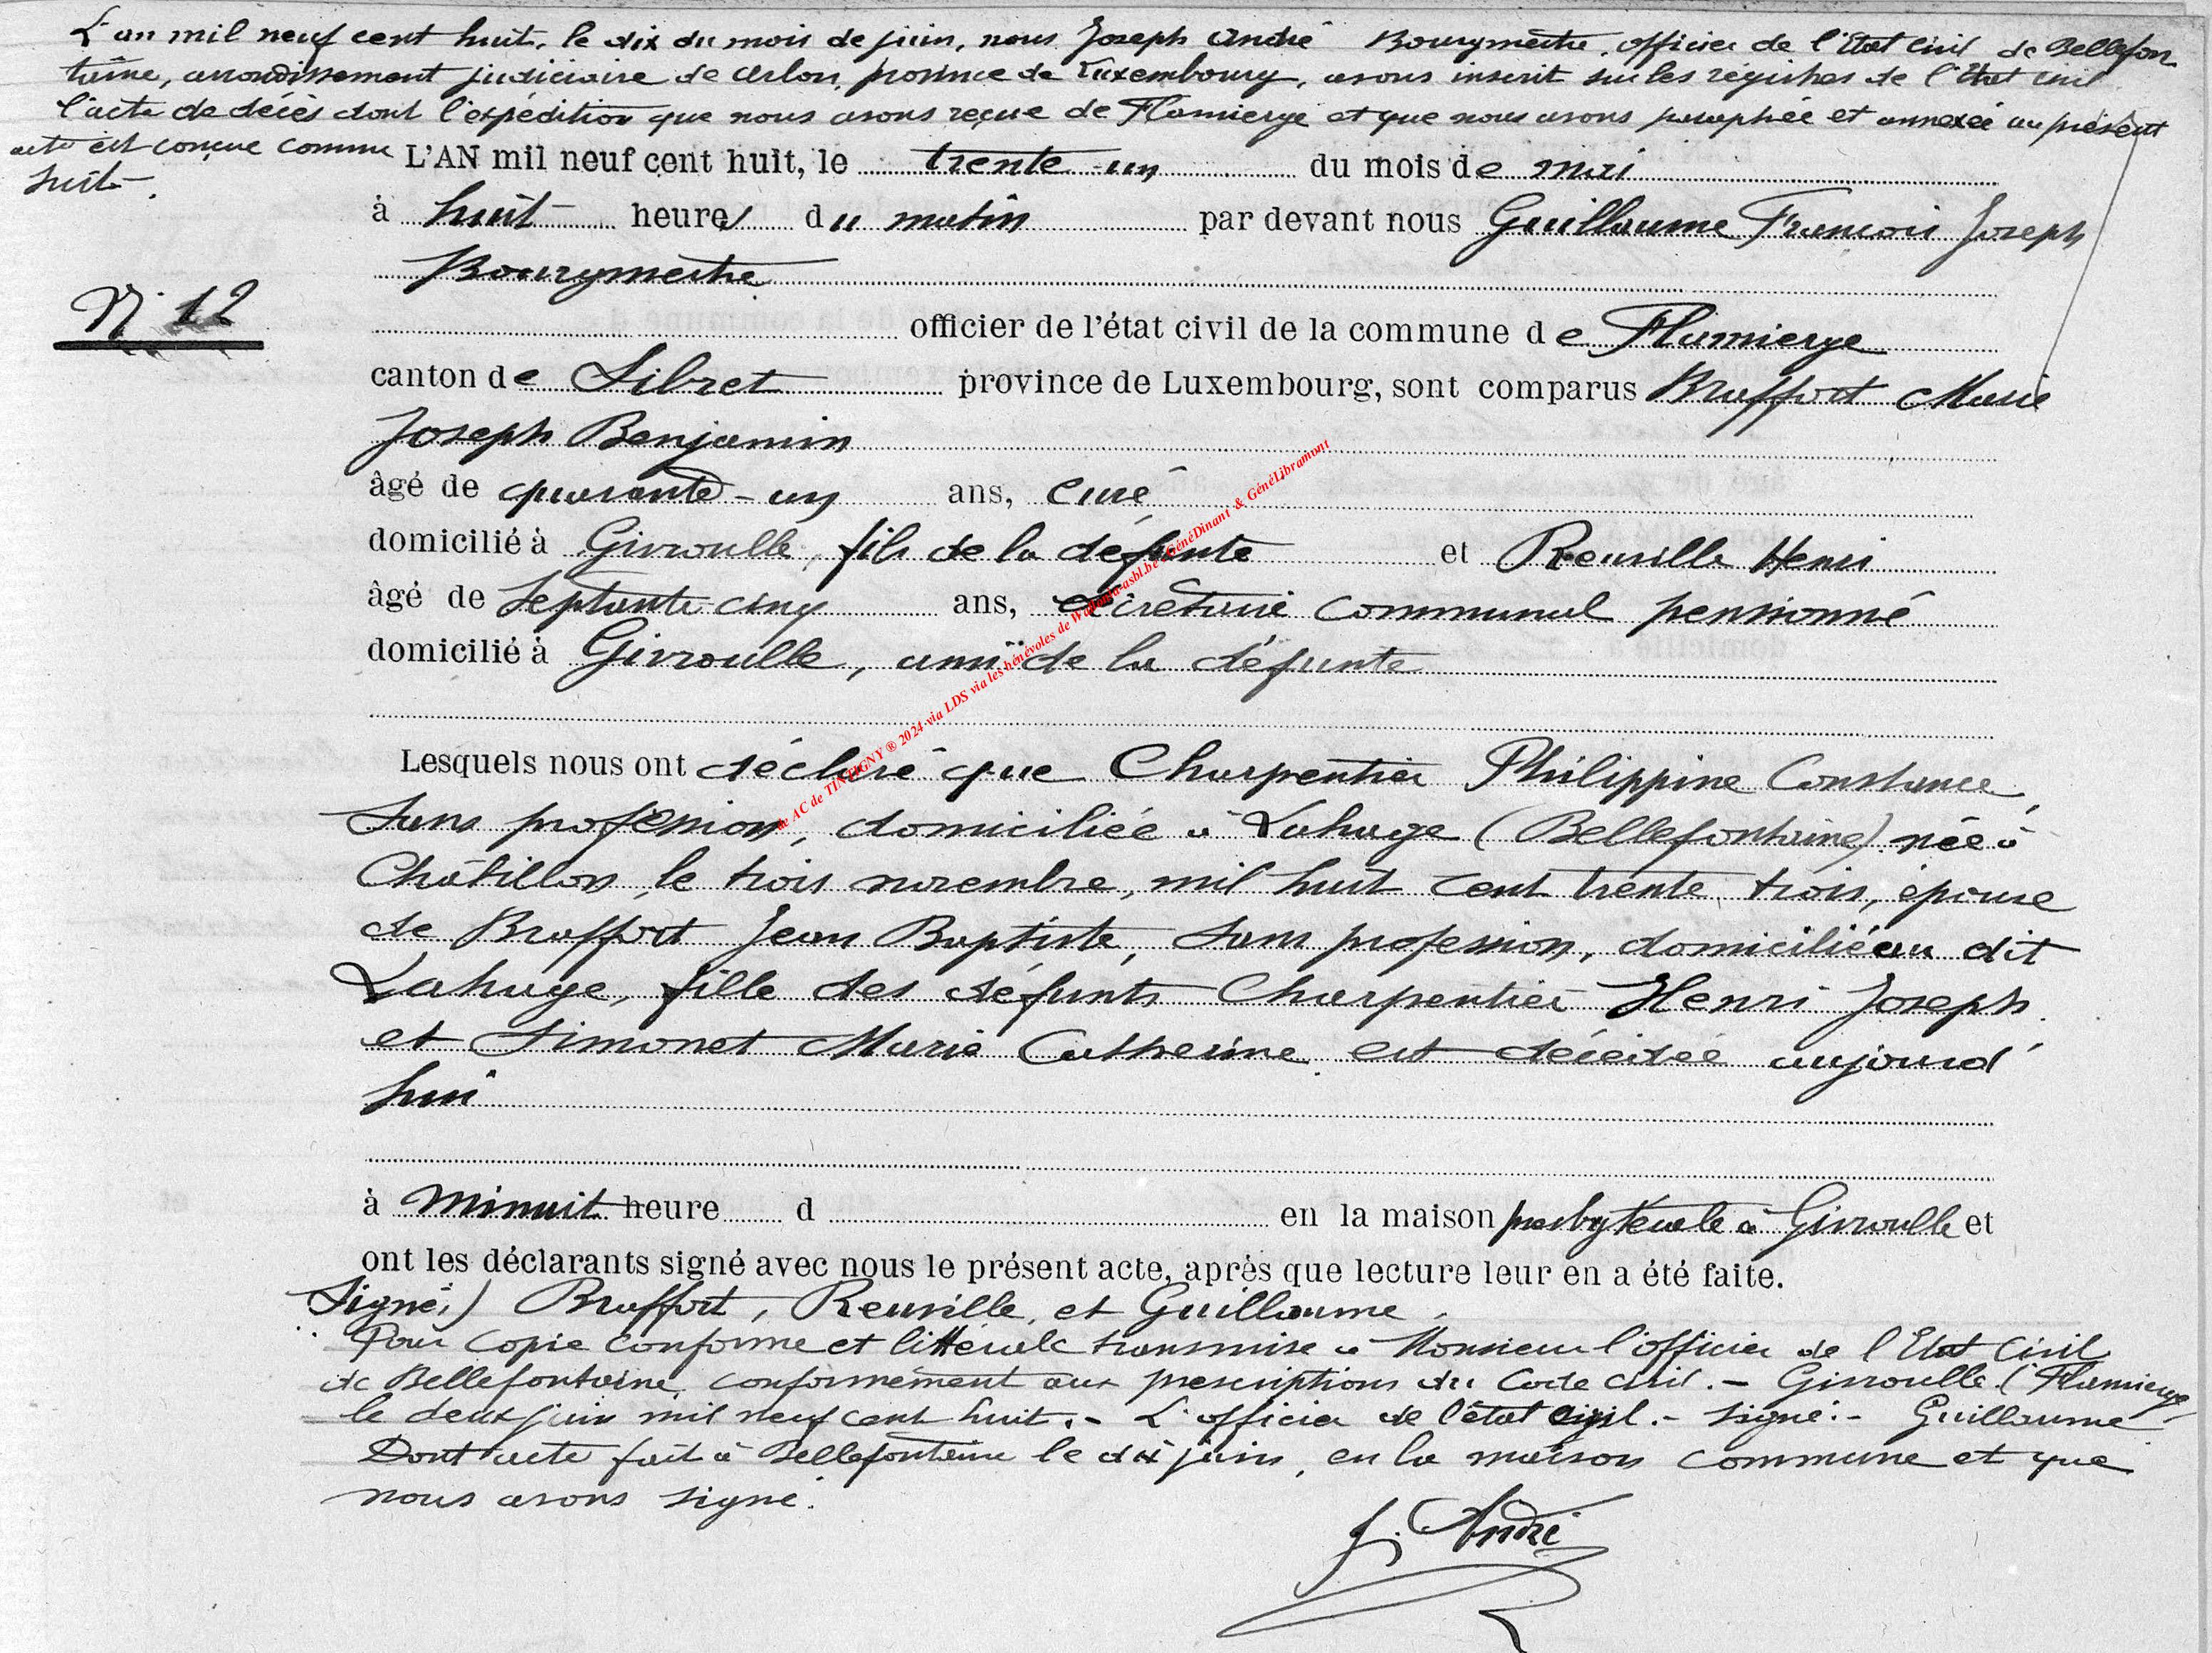 L'an mil neuf cent huit, le dix du mois de juin, nous Joseph André Bourgmestre, officier de l'Etat civil de Bellefon
taine, arrondissement judiciaire de Arlon, province de Luxembourg, avons inscrit sur les registres de l'Etat civil
l'acte de décès dont l'expédition que nous avons reçue de Flamierge et que nous avons paraphée et annexée au présent
acte est conçue comme
suit.
L'AN mil neuf cent huit, le trente-un du mois de mai
à huit heures du matin par devant nous Guillaume François Joseph
Bourgmestre
N° 12
officier de l'état civil de la commune de Flamierge
canton de Sibret province de Luxembourg, sont comparus Braffort Marie
Joseph Benjamin
âgé de quarante-un ans, curé
domicilié à Givroulle, fils de la défunte et Reuville Henri
âgé de septante-cinq ans, secrétaire communal pensionné
domicilié à Givroulle, ami de la défunte
Lesquels nous ont déclaré que Charpentier Philippine Constance,
sans profession, domiciliée à Lahage (Bellefontaine) née à
Châtillon, le trois novembre, mil huit cent trente trois, épouse
de Braffort Jean Baptiste, sans profession, domicilié au dit
Lahage, fille des défunts Charpentier Henri Joseph
et Simonet Marie Catherine est décédée aujourd'
hui
à minuit heure d en la maison presbytérale à Givroulle et
ont les déclarants signé avec nous le présent acte, après que lecture leur en a été faite.
Signé,) Braffort, Reuville, et Guillaume,
Pour copie conforme et littérale transmise à Monsieur l'officier de l'Etat Civil
de Bellefontaine, conformément aux prescriptions du Code civil. - Givroulle (Flamierge
le deux juin mil neuf cent huit. - L'officier de l'état civil. - signé: - Guillaume
Dont acte fait à Bellefontaine le dix juin, en la maison commune et que
nous avons signé.
J. André
de AC de TINTIGNY ® 2024 via LDS via les bénévoles de Wallonia-asbl.be GénéDinant & GénéLibramont